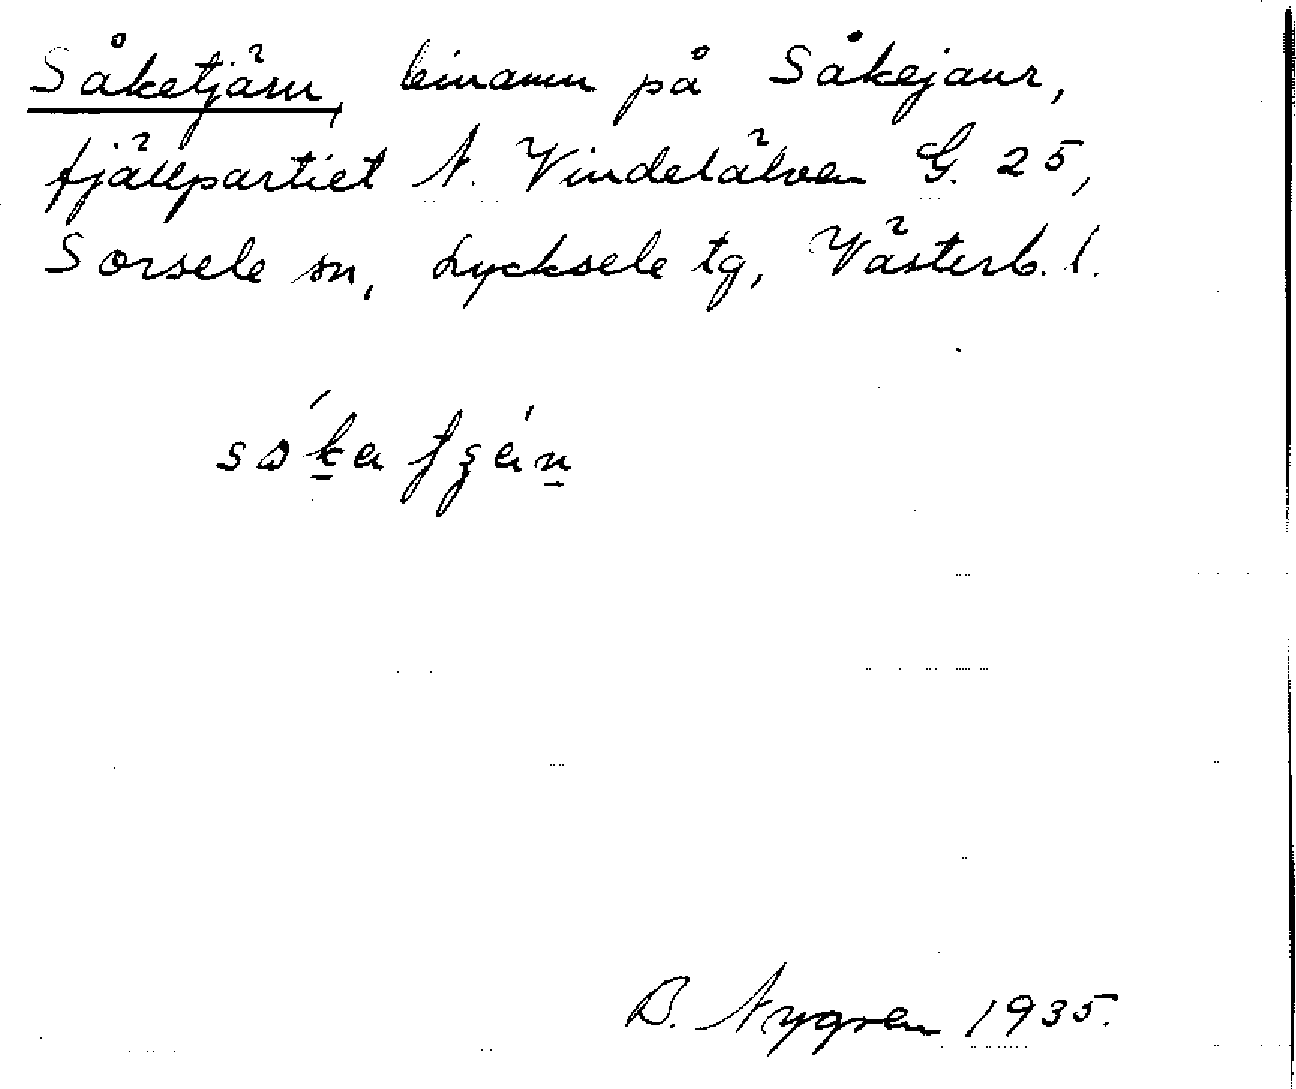 Såketjärn, binamn på Såkejaur,
fjällpartiet N. Vindelälven G. 25,
Sorsele sn, Lycksele tg, Västerb. l.
B. Nygren 1935.